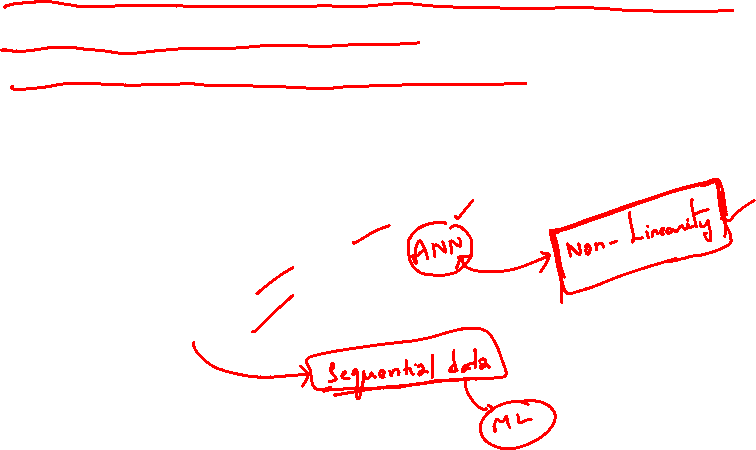 ANN
Non-Linearity
Sequential data
ML